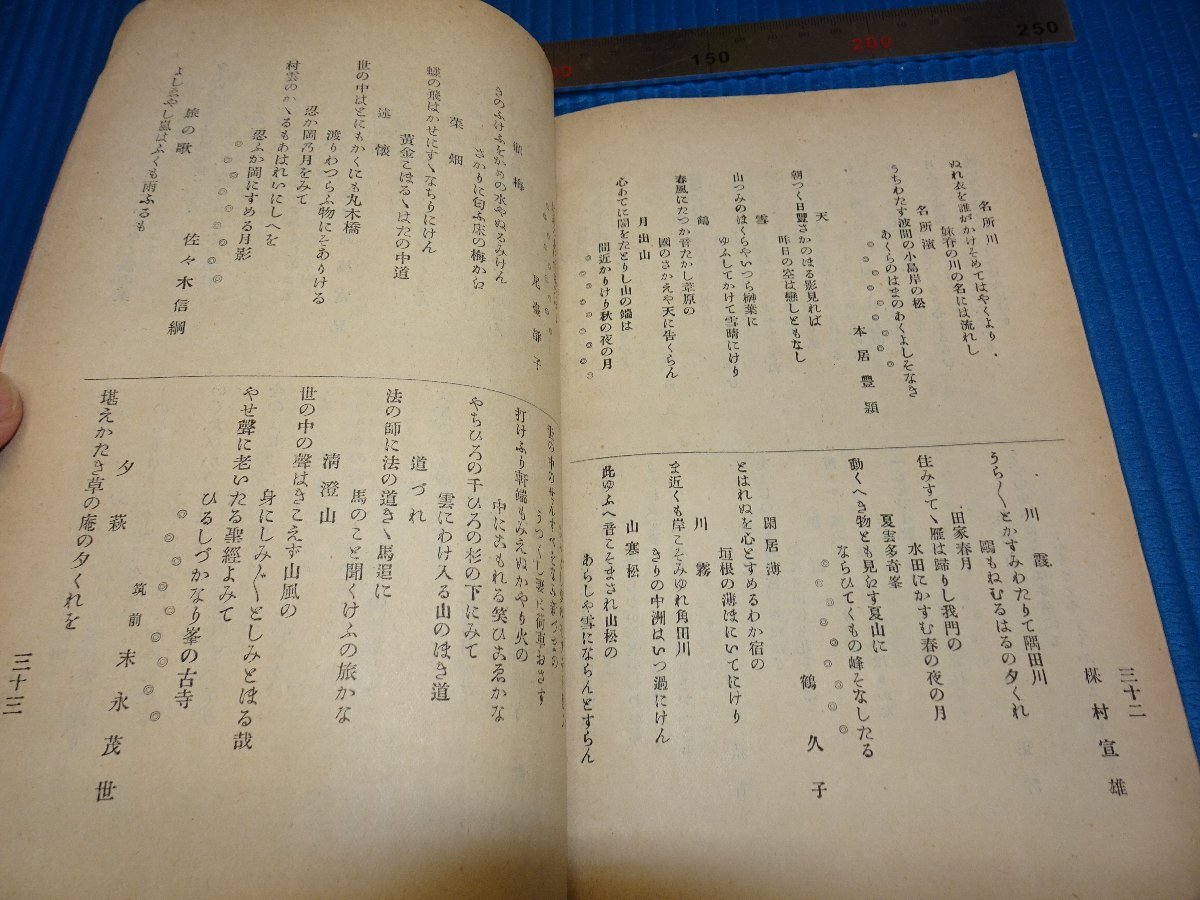 三十二
名所川
ぬれ衣を誰がかけそめてはやくより、
妹脊の川の名には流れし
名所濱
うちわたす波間の小島岸の松
あくらのはまのあくよしそなき
◎◎◎◎◎◎
本居豊頴
天
朝つく日豐さかのほる影見れば
昨日の空は戀しともなし
雪
山つみのほくらやいつら榊葉に
ゆふしてかけて雪晴にけり
鶴
春風にたつか音たかし葦原の
國のさかえや天に告くらん
月出山
心あてに闇をたとりし山の端は
間近かりけり秋の夜の月
◎◎◎◎◎◎
村宣雄
川霞
うら〱とかすみわたりて隅田川
鷗もねむるはるの夕くれ
田家春月
住みすてゝ雁は歸りし我門の
水田にかすむ春の夜の月
夏雲多奇峯
動くへき物とも見えす夏山に
ならひてくもの峰そなしたる
◎◎◎◎◎◎
鶴久子
閑居薄
とはれぬを心とすめるわか宿の
垣根の薄ほにいてにけり
川霧
ま近くも岸こそみゆれ角田川
きりの中洲はいつ過にけん
山寒松
此ゆふへ音こそまされ山松の
あらしや雪にならんとすらん
梅
きのふけふをかめの水やぬるみけん
さかりに匂ふ床の梅かえ
菜畑
蝶の飛はかせにすゝなちりにけん
黄金こほるゝはたの中道
述懐
世の中はとにもかくにも丸木橋
渡りわつらふ物にそありける
忍か岡乃月をみて
村雲のかゝるもあはれいにしへを
忍ふか岡にすめる月影
◎◎◎◎◎◎
佐々木信綱
旅の歌
よしゑやし嵐はふくも雨ふるも
うつくし妻に荷車おさす
打けふり軒端もみえぬかやり火の
中にこもれる笑ひこゑかな
やちひろの千ひろの杉の下にみて
雲にわけ入る山のほき道
道づれ
法の師に法の道きゝ馬追に
馬のこと聞くけふの旅かな
清澄山
世の中の聲はきこえず山風の
身にしみ〲としみとほる哉
やせ聲に老いたる聖經よみて
ひるしづかなり峯の古寺
◎◎◎◎◎◎
筑前 末永茂世
夕萩
堪えかたき草の庵の夕くれを
三十三
150
200
250